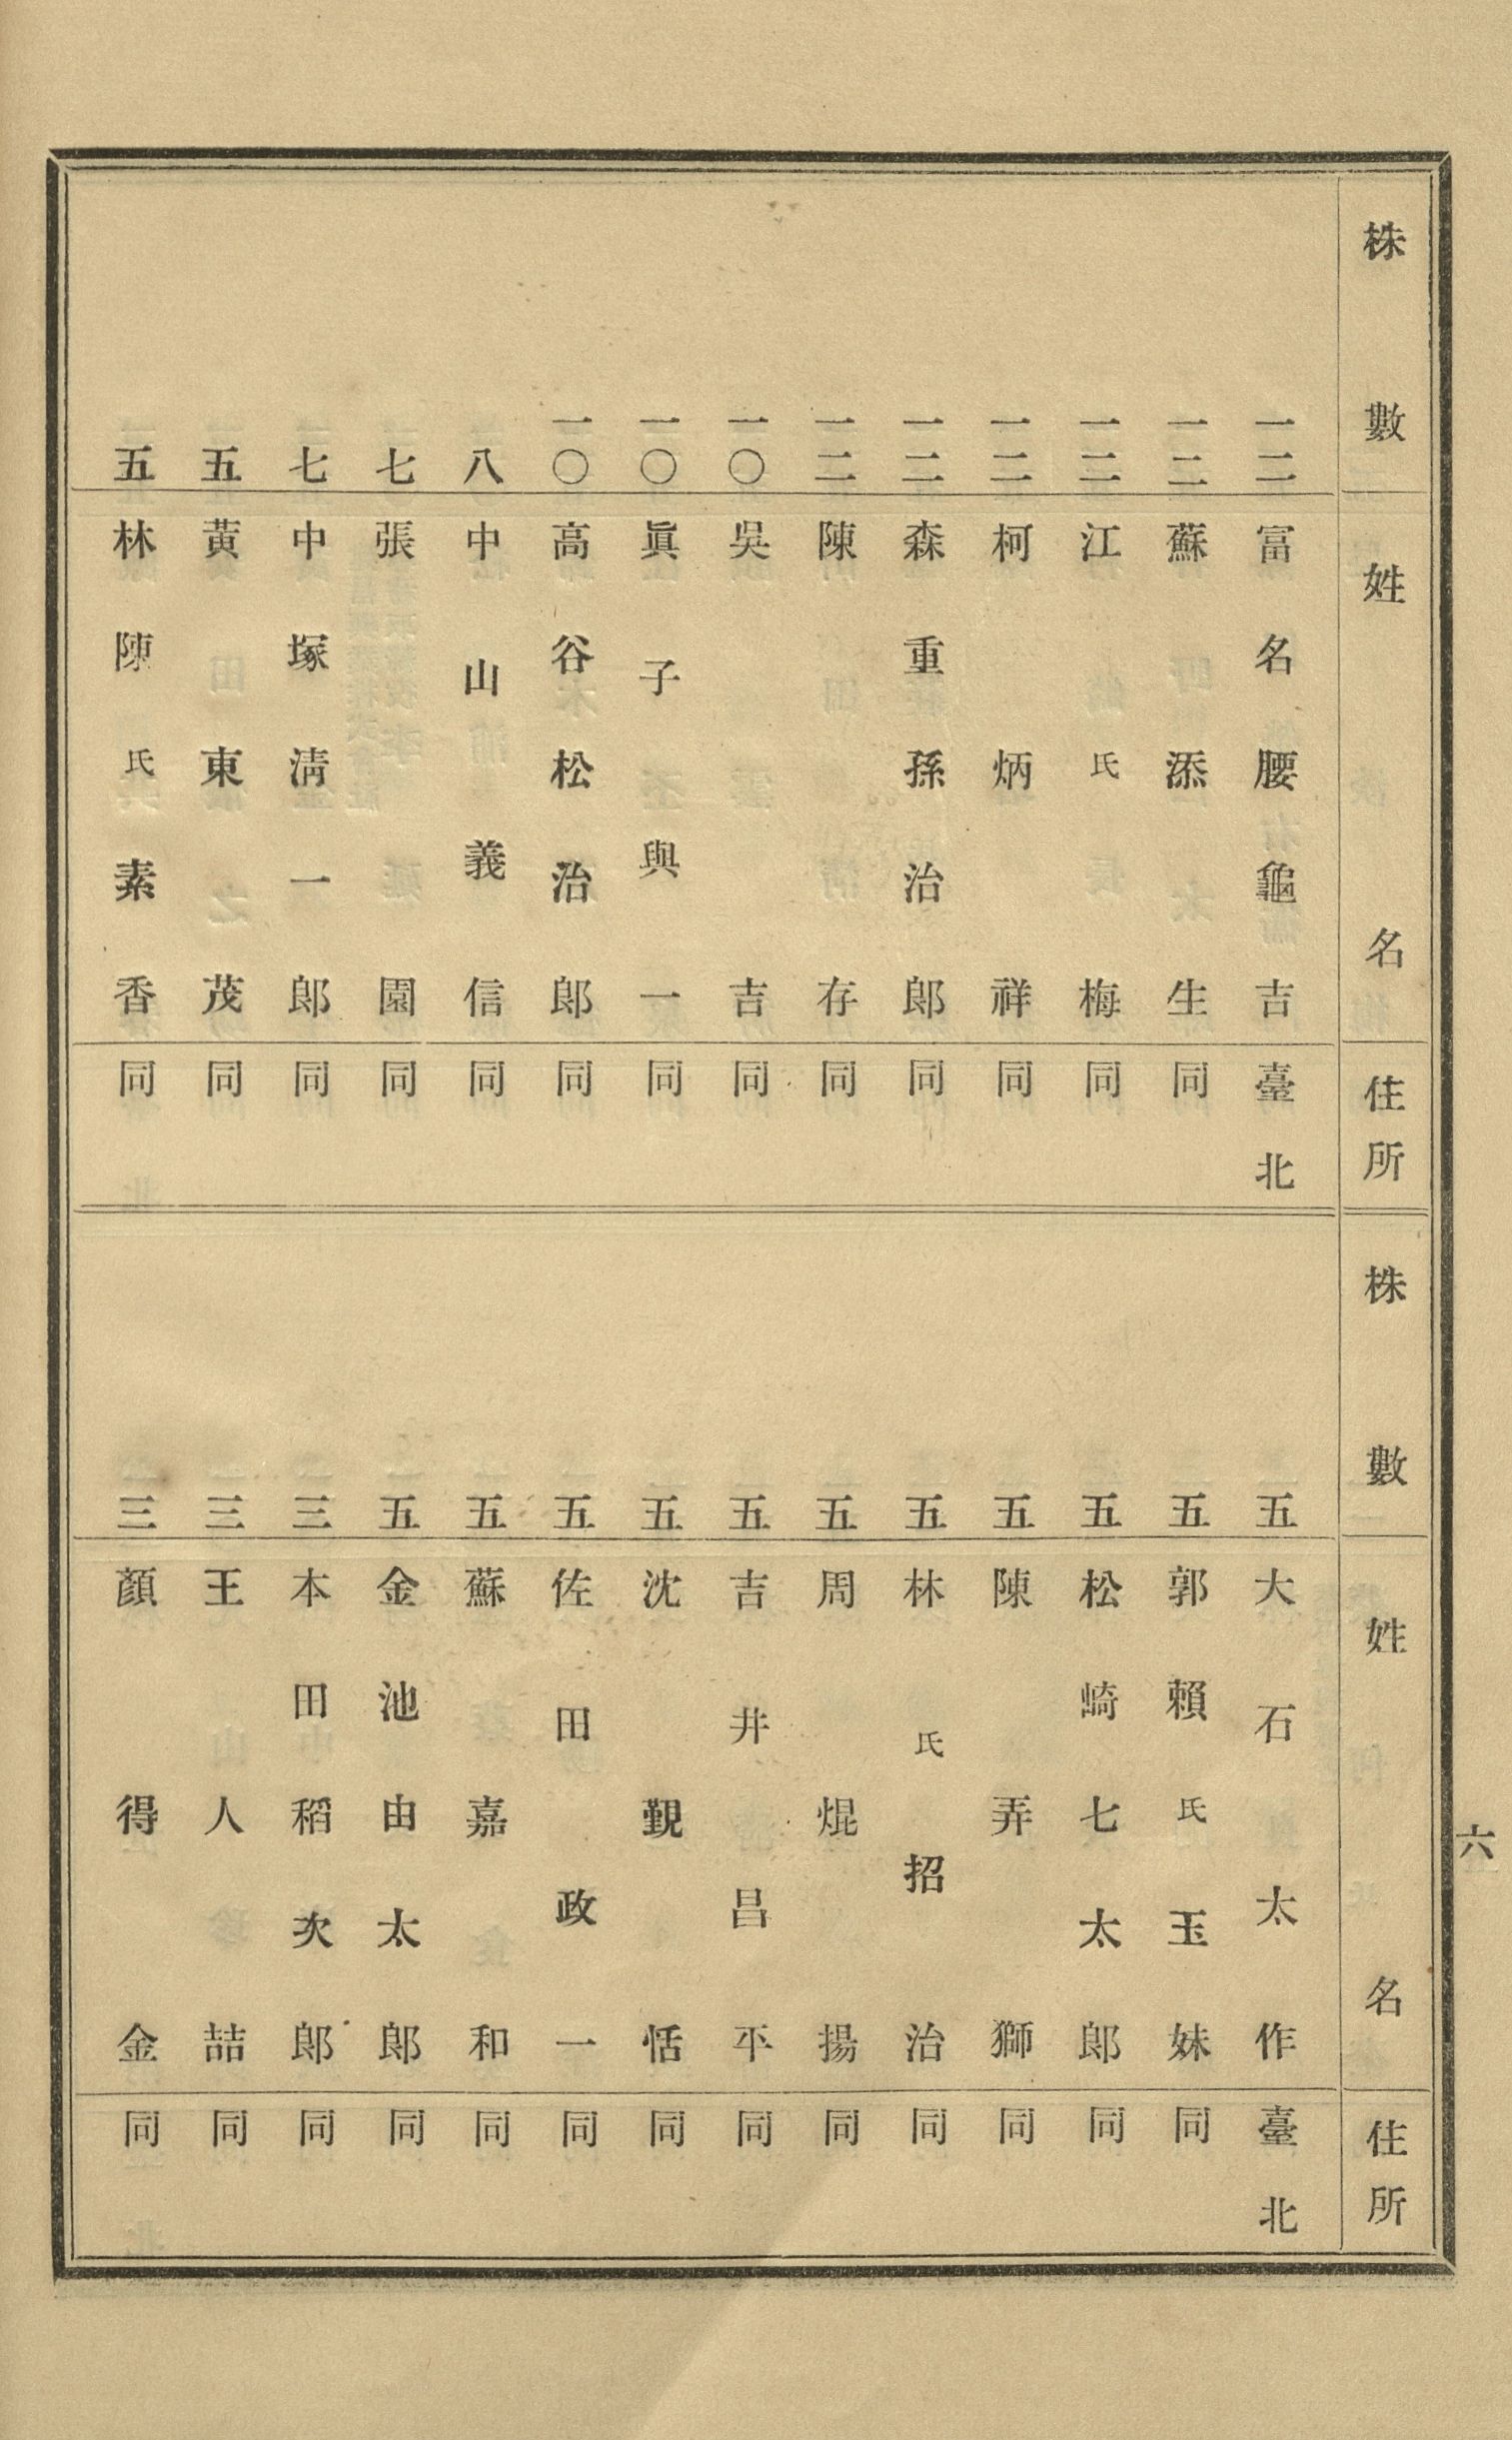 株數 姓名 住所
一二 富名腰龜吉 臺北
一二 蘇添生 同
一二 江氏梅 同
一二 柯炳祥 同
一二 森重孫治郎 同
一二 陳存 同
一〇 吳吉 同
一〇 眞子與一 同
一〇 高谷松治郎 同
八 中山義信 同
七 張園 同
七 中塚淸一郎 同
五 黃東茂 同
五 林陳氏素香 同
株數 姓名 住所
五 大石太作 臺北
五 郭賴氏玉妹 同
五 松崎七太郎 同
五 陳弄獅 同
五 林氏招治 同
五 周焜揚 同
五 吉井昌平 同
五 沈覲恬 同
五 佐田政一 同
五 蘇嘉和 同
五 金池由太郎 同
三 本田稻次郎 同
三 王人喆 同
三 顏得金 同
六